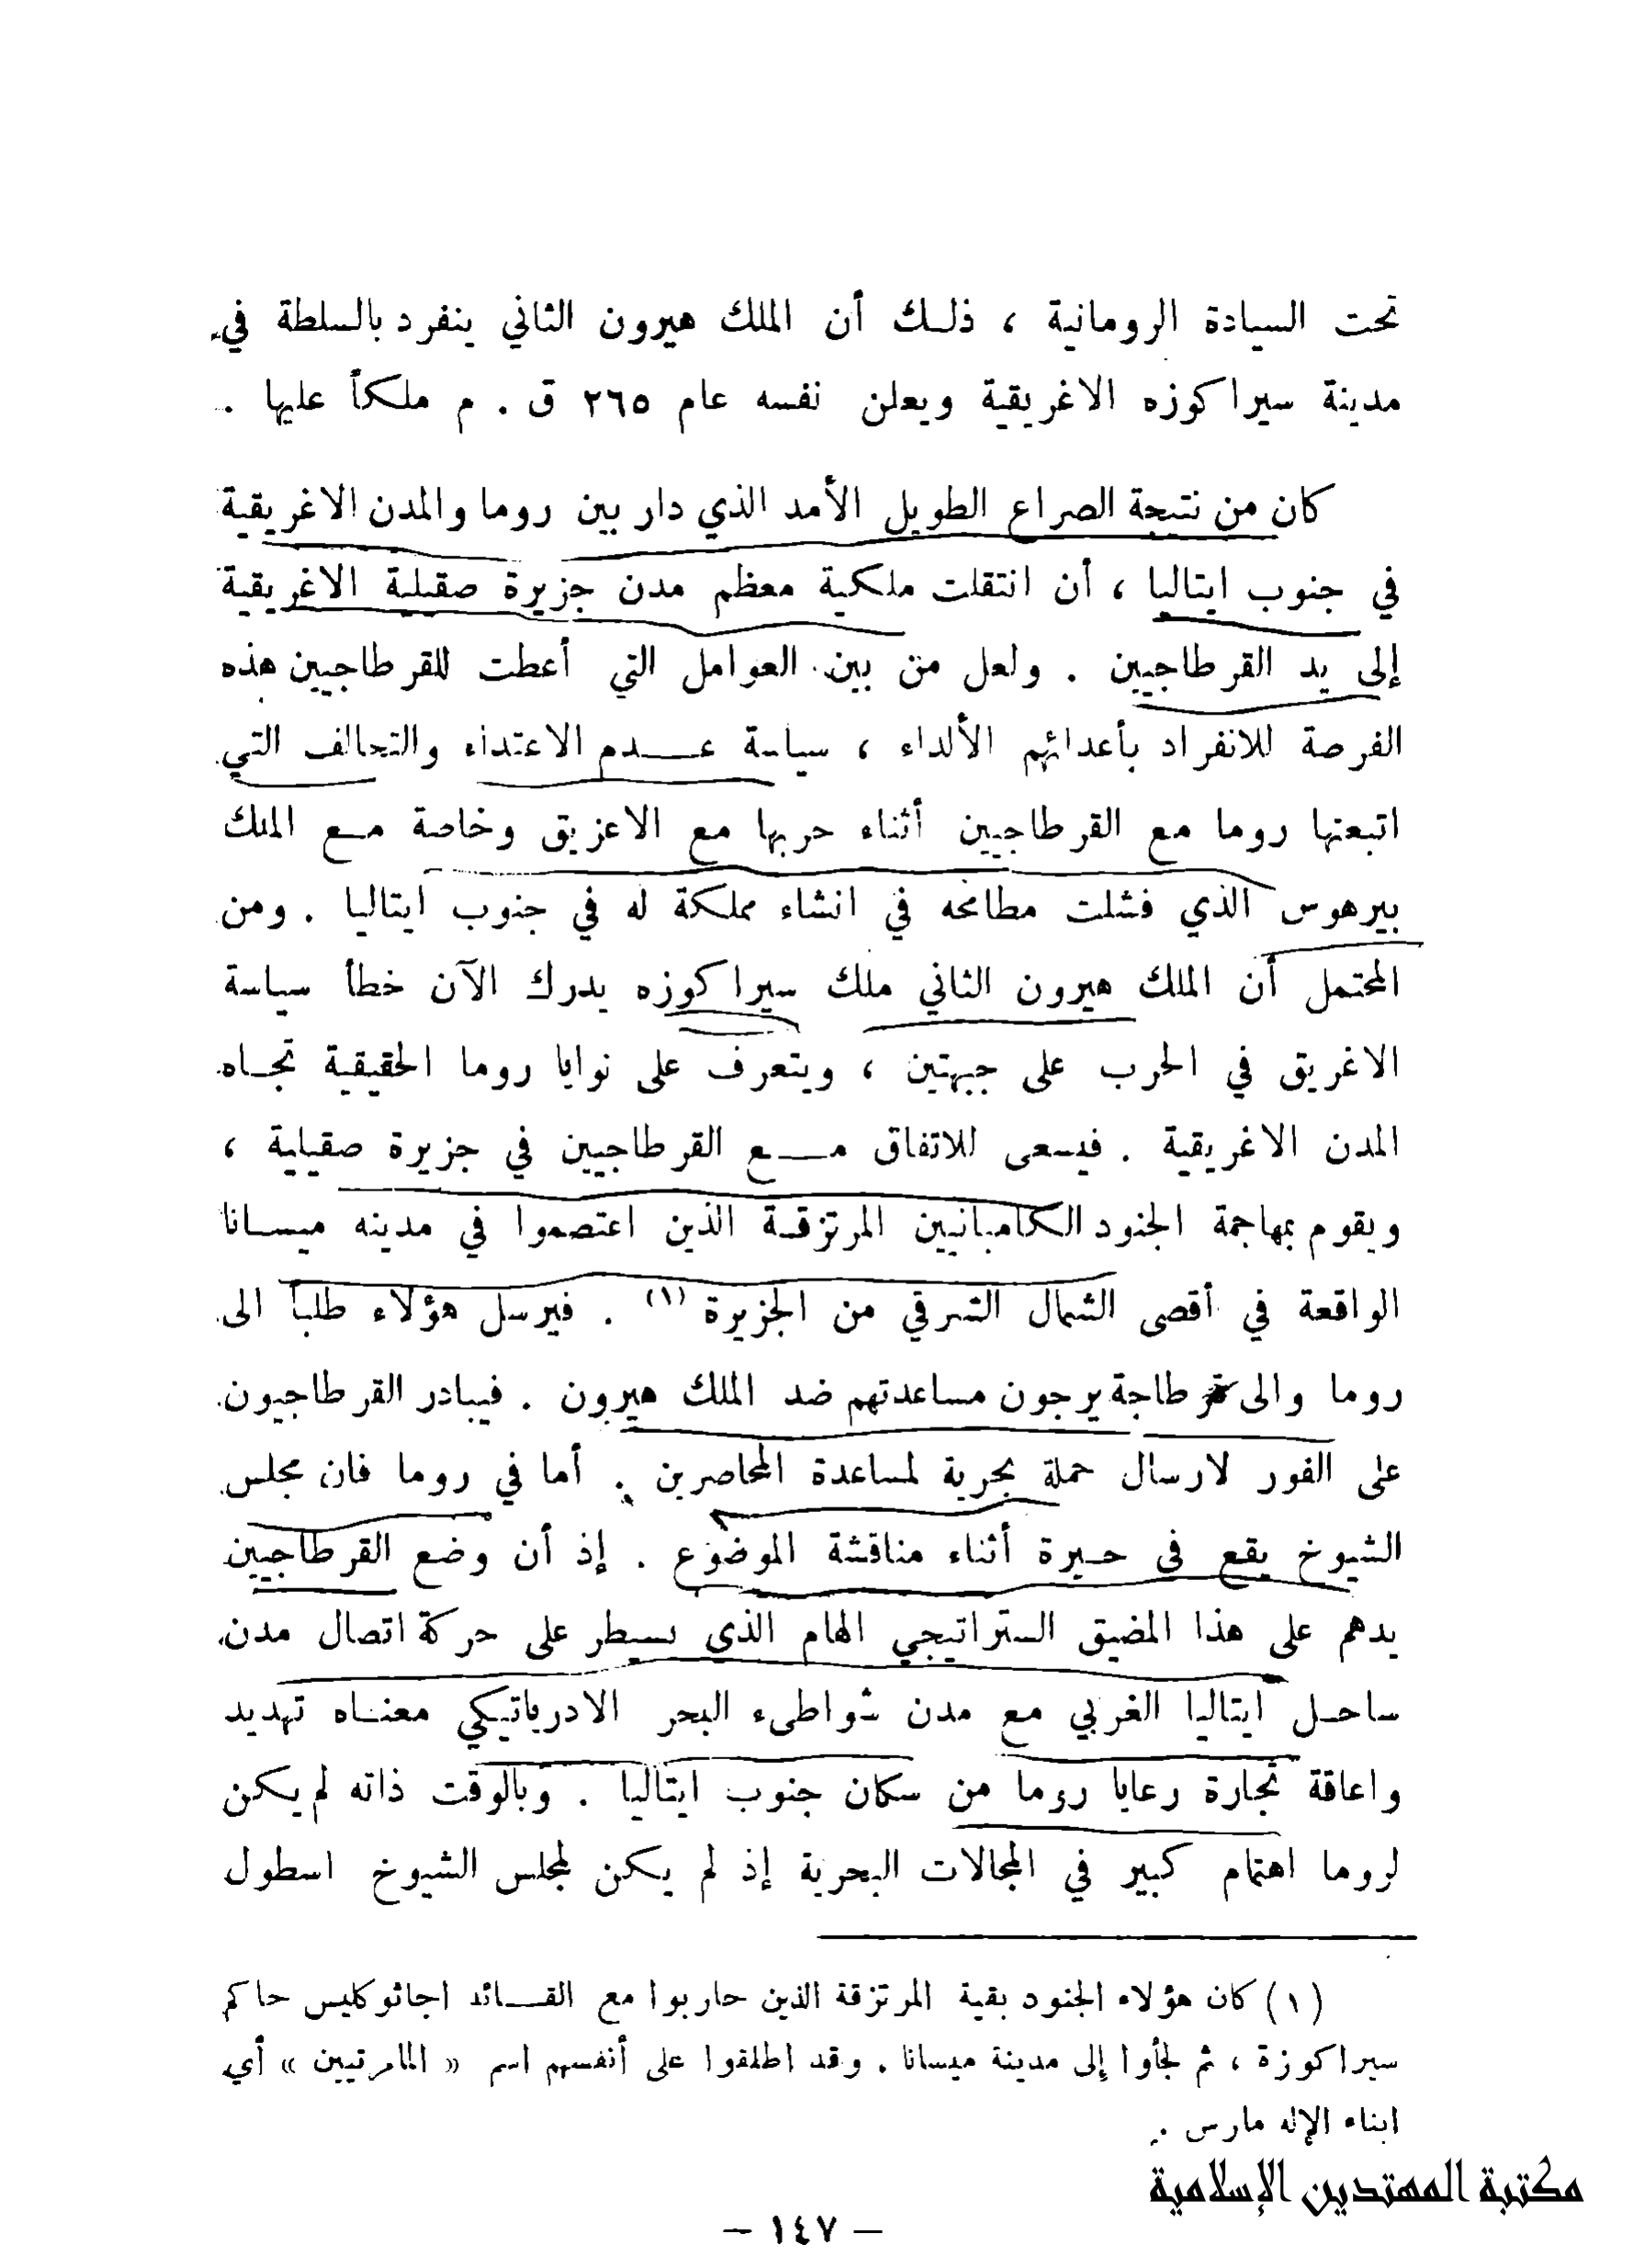 تحت السيادة الرومانية ، ذلك أن الملك هيرون الثاني ينفرد بالسلطة في
مدينة سيراكوزه الاغريقية ويعلن نفسه عام ٢٦٥ ق . م ملكاً عليها .
كان من نتيجة الصراع الطويل الأمد الذي دار بين روما والمدن الاغريقية
في جنوب ايتاليا ، أن انتقلت ملكية معظم مدن جزيرة صقيلية الاغريقية
إلى يد القرطاجيين . ولعل من بين العوامل التي أعطت للقرطاجيين هذه
الفرصة للانفراد بأعدائهم الألداء ، سياسة عـدم الاعتداء والتحالف التي
اتبعتها روما مع القرطاجيين أثناء حربها مع الاعزيق وخاصة مـع الملك
بيرهوس الذي فشلت مطامحه في انشاء مملكة له في جنوب ايتاليا . ومن
المحتمل أن الملك هيرون الثاني ملك سيراكوزه يدرك الآن خطأ سياسة
الاغريق في الحرب على جبهتين ، ويتعرف على نوايا روما الحقيقية تجـاه
المدن الاغريقية . فيسعى للاتفاق مـع القرطاجيين في جزيرة صقيلية ،
ويقوم بمهاجمة الجنود الكامبانيين المرتزقـة الذين اعتصموا في مدينه ميسـانا
الواقعة في أقصى الشمال الشرقي من الجزيرة (١) . فيرسل هؤلاء طلباً الى
روما والى قرطاجة يرجون مساعدتهم ضد الملك هيرون . فيبادر القرطاجيون
على الفور لارسال حملة بحرية لمساعدة المحاصرين . أما في روما فان مجلس
الشيوخ يقع في حـيرة أثناء مناقشة الموضوع . إذ أن وضع القرطاجيين
يدهم على هذا المضيق الستراتيجي الهام الذي يسيطر على حركة اتصال مدن
ساحـل ايتاليا الغربي مع مدن شواطىء البحر الادرياتيكي معنـاه تهديد
واعاقة تجارة رعايا روما من سكان جنوب ايتاليا . وبالوقت ذاته لم يكن
لروما اهتمام كبير في المجالات البحرية إذ لم يكن لمجلس الشيوخ اسطول
(١) كان هؤلاء الجنود بقية المرتزقة الذين حاربوا مع القـائد اجاثوكليس حاكم
سيراكوزة ، ثم لجأوا إلى مدينة ميسانا . وقد اطلقوا على أنفسهم اسم « المامرتيين » أي
ابناء الإله مارس .
مكتبة المهتدين الإسلامية
– ١٤٧ –